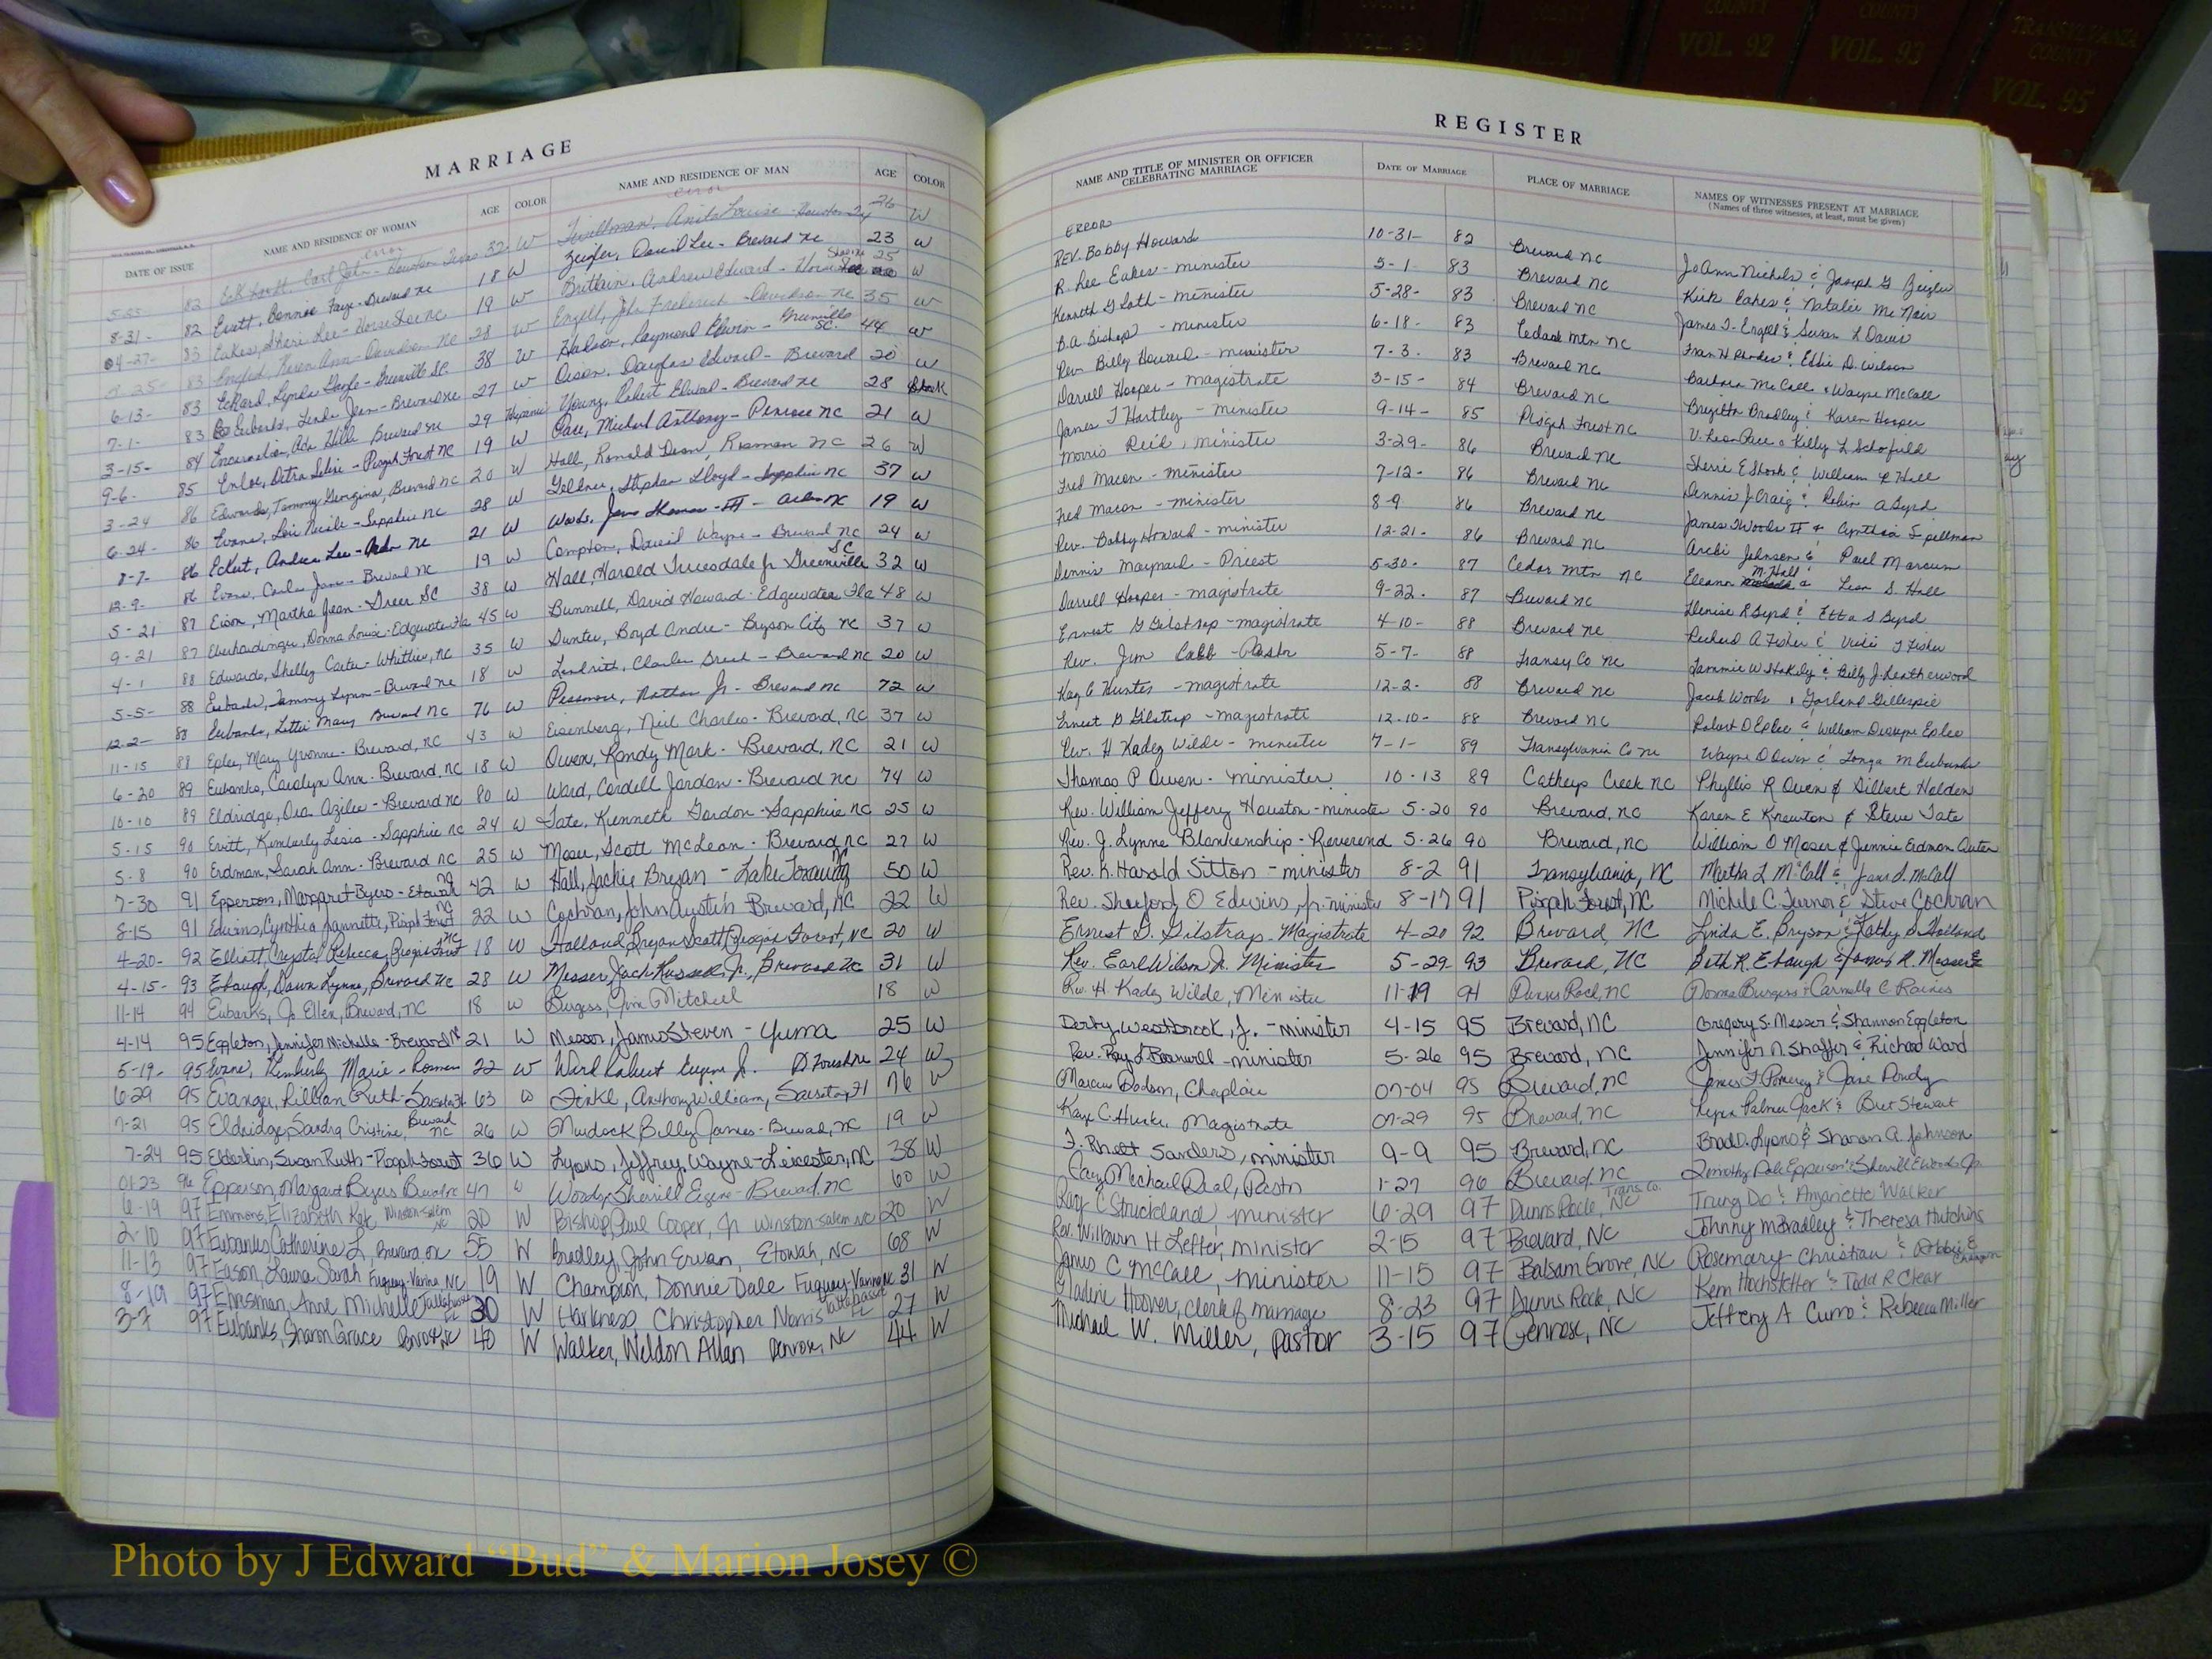 COUNTY
VOL. 92
COUNTY
VOL. 93
TRANSYLVANIA
COUNTY
VOL. 95
MARRIAGE
DATE OF ISSUE NAME AND RESIDENCE OF WOMAN AGE COLOR NAME AND RESIDENCE OF MAN AGE COLOR
error error
82 32 W 26 W
8-31- 82 Evett, Bonnie Faye - Brevard NC 18 W Zeigler, David Lee - Brevard NC 23 W
04-27- 83 Eakes, Sheri Lee - Horse Shoe NC 19 W Brittain, Andrew Edward - Horse Shoe NC 25 W
83 Engled, Karen Ann - Davidson NC 28 W Engell, John Frederick - Davidson NC 35 W
6-13- 83 Eckard, Lynda Gayle - Greenville SC 38 W Hudson, Raymond Edwin - Greenville SC. 44 W
7-1- 83 Eubanks, Linda Jean - Brevard NC 27 W Orson, Douglas Edward - Brevard 20 W
3-15- 84 Encarnacion, Ada Hilda Brevard NC 29 Young, Robert Edward - Brevard NC 28 Black
9-6- 85 Enloe, Detra Selise - Pisgah Forest NC 19 W Pace, Michael Anthony - Penrose NC 21 W
3-24 86 Edwards, Tammy Georgina, Brevard NC 20 W Hall, Ronald Dean, Rosman NC 26 W
6-24- 86 Evans, Lori Nicile - Sapphire NC 28 W Gellner, Stephen Lloyd - Sapphire NC 37 W
8-7- 86 Eckert, Andrea Lee - Arden NC 21 W Woods, James Thomas - III - Arden NC 19 W
12-9- 86 Evans, Carla Jane - Brevard NC 19 W Compton, David Wayne - Brevard NC 24 W
5-21 87 Eison, Martha Jean - Greer SC 38 W Hall, Harold Truesdale Jr Greenville SC 32 W
9-21 87 Eberhardinger, Donna Louise - Edgewater Fla 45 W Bunnell, David Howard - Edgewater Fla 48 W
4-1 88 Edwards, Shelley Carter - Whittier, NC 35 W Dunter, Boyd Andre - Bryson City NC 37 W
5-5- 88 Eubanks, Tammy Lynn - Brevard NC 18 W Landrith, Charles Brent - Brevard NC 20 W
12-2- 88 Eubanks, Lettie Mary Brevard NC 76 W Passmore, Nathan Jr - Brevard NC 72 W
11-15 88 Eplee, Mary Yvonne - Brevard, NC 43 W Eisenberg, Neil Charles - Brevard, NC 37 W
6-20 89 Eubanks, Carolyn Ann - Brevard, NC 18 W Owen, Randy Mark - Brevard, NC 21 W
10-10 89 Eldridge, Ora Azilee - Brevard NC 80 W Ward, Cordell Jordan - Brevard NC 74 W
5-15 90 Evitt, Kimberly Lesia - Sapphire NC 24 W Tate, Kenneth Gordon - Sapphire NC 25 W
5-8 90 Erdman, Sarah Ann - Brevard NC 25 W Moser, Scott McLean - Brevard, NC 27 W
7-30 91 Epperson, Margaret Byers - Etowah NC 42 W Hall, Jackie Bryan - Lake Toxaway NC 50 W
8-15 91 Edwins, Cynthia Jannette, Pisgah Forest NC 22 W Cochran, John Austin Brevard, NC 22 W
4-20- 92 Elliott, Crystal Rebecca, Pisgah Forest NC 18 W Holland, Bryan Scott, Pisgah Forest, NC 20 W
4-15- 93 Ebaugh, Dawn Lynne, Brevard NC 28 W Messer, Jack Russell, Jr., Brevard NC 31 W
11-14 94 Eubanks, Jo Ellen, Brevard, NC 18 W Burgess, Jim Mitchell 18 W
4-14 95 Eggleton, Jennifer Michelle - Brevard NC 21 W Messer, James Steven - Yuma 25 W
5-19- 95 Evans, Kimberly Marie - Rosman 22 W Ward Robert Eugene Jr. 24 W
6-29 95 Evanger, Lillian Ruth - Sarasota Fl 63 W Finkl, Anthony William, Sarasota, Fl 76 W
7-21 95 Eldridge, Sandra Cristine, Brevard NC 26 W Murdock Billy James - Brevard, NC 19 W
7-24 95 Elderkin, Susan Ruth - Pisgah Forest 36 W Lyons, Jeffrey Wayne - Leicester, NC 38 W
01-23 96 Epperson, Margaret Byers Brevard NC 47 W Woody, Sherrill Eugene - Brevard, NC 60 W
6-19 97 Emmons, Elizabeth Kate Winston-Salem NC 20 W Bishop, Paul Cooper, Jr Winston-Salem NC 20 W
2-10 97 Eubanks, Catherine L, Brevard, NC 55 W Bradley, John Ervan, Etowah, NC 68 W
11-13 97 Eason, Laura Sarah Fuquay-Varina, NC 19 W Champion, Donnie Dale Fuquay-Varina NC 31 W
8-19 97 Ehrisman, Anne Michelle Tallahassee FL 30 W Harkness, Christopher Norris Tallahassee FL 27 W
3-7 97 Eubanks, Sharon Grace Penrose, NC 40 W Walker, Weldon Allan Penrose, NC 44 W
REGISTER
NAME AND TITLE OF MINISTER OR OFFICER CELEBRATING MARRIAGE DATE OF MARRIAGE PLACE OF MARRIAGE NAMES OF WITNESSES PRESENT AT MARRIAGE
(Names of three witnesses, at least, must be given)
ERROR
REV. Bobby Howard 10-31- 82 Brevard NC JoAnn Nichols & Joseph G Zeigler
R. Lee Eakes - minister 5-1- 83 Brevard NC Kirk Eakes & Natalie McNair
Kenneth G Lath - minister 5-28- 83 Brevard NC James T. Engell & Susan L Davis
B.A. Bishop - minister 6-18- 83 Cedar Mtn NC Fran H Rhodes & Effie D. Wilson
Rev. Billy Howard - minister 7-3- 83 Brevard NC Barbara McCall & Wayne McCall
Darrell Hooper - magistrate 3-15- 84 Brevard NC Brigitta Bradley & Karen Hooper
James T Hartley - minister 9-14- 85 Pisgah Forest NC V. Leon Pace & Kelly L Schofield
Morris Reid, minister 3-29- 86 Brevard NC Sherrie E Shook & William R Hall
Fred Macon - minister 7-12- 86 Brevard NC Dennis J. Craig & Robin A Byrd
Fred Macon - minister 8-9 86 Brevard NC James T Woods II & Cynthia Spellman
Rev. Bobby Howard - minister 12-21- 86 Brevard NC Archi Johnson & Paul Marcum
Dennis Maynard - Priest 5-30- 87 Cedar Mtn NC Eleanor M. Hall & Leon S. Hall
Darrell Hooper - magistrate 9-22- 87 Brevard NC Denise R Byrd & Etta S Byrd
Ernest G Gilstrap - magistrate 4-10- 88 Brevard NC Richard A Fisher & Vicki T Fisher
Rev. Jim Cabb - Pastor 5-7- 88 Transy Co NC Tammie W Stakely & Billy J. Leatherwood
Kay C Hunter - magistrate 12-2- 88 Brevard NC Jacob Woods & Garland Gillespie
Ernest G Gilstrap - magistrate 12-10- 88 Brevard NC Robert D Eplee & William Dewayne Eplee
Rev. H Kadez Wilde - minister 7-1- 89 Transylvania Co NC Wayne D Owen & Tonya M Eubanks
Thomas P Owen - minister 10-13 89 Catheys Creek NC Phyllis R Owen & Gilbert Holden
Rev. William Jeffery Houston - minister 5-20 90 Brevard, NC Karen E Knewton & Steve Tate
Rev. J. Lynne Blankenship - Reverend 5-26 90 Brevard, NC William O Moser & Jennie Erdman Carter
Rev. K. Harold Sitton - minister 8-2 91 Transylvania, NC Martha L McCall & Jane S. McCall
Rev. Shelford O Edwins, Jr. - minister 8-17 91 Pisgah Forest, NC Michele C. Turner & Steve Cochran
Ernest G. Gilstrap - Magistrate 4-20 92 Brevard, NC Linda E. Bryson & Kathy S. Holland
Rev. Earl Wilson Jr. Minister 5-29- 93 Brevard, NC Beth R. Ebaugh & James R. Messer
Rev. H. Kadez Wilde, Minister 11-19 94 Dunns Rock, NC Donna Burgess & Carmella C Raines
Derby Westbrook, Jr. - minister 4-15 95 Brevard, NC Gregory S. Messer & Shannon Eggleton
Rev. Roy L Bonwell - minister 5-26 95 Brevard, NC Jennifer N. Shaffer & Richard Ward
Marcus Dodson, Chaplain 07-04 95 Brevard, NC James F Pomeroy & Jane Dondy
Kaye C. Hunter, Magistrate 07-29 95 Brevard, NC Lynn Palmer Jack & Bret Stewart
F. Rhett Sanders, minister 9-9 95 Brevard, NC Brad D. Lyons & Sharon A. Johnson
Gary Michael Deal, Pastor 1-27 96 Brevard, NC Timothy Dale Epperson & Sherrill E Woody Jr.
Roy C Strickland, minister 6-29 97 Dunns Rock, NC Trans. Co. Trung Do & Anjanette Walker
Rev. Wilburn H Lefter, minister 2-15 97 Brevard, NC Johnny M Bradley & Theresa Hutchins
James C McCall, minister 11-15 97 Balsam Grove, NC Rosemary Christian & Debbie E Champion
Nadine Hoover, clerk of marriage 8-23 97 Dunns Rock, NC Kem Hochstetler & Todd R Clear
Michael W. Miller, pastor 3-15 97 Penrose, NC Jeffery A Curro & Rebecca Miller
Photo by J Edward “Bud” & Marion Josey ©